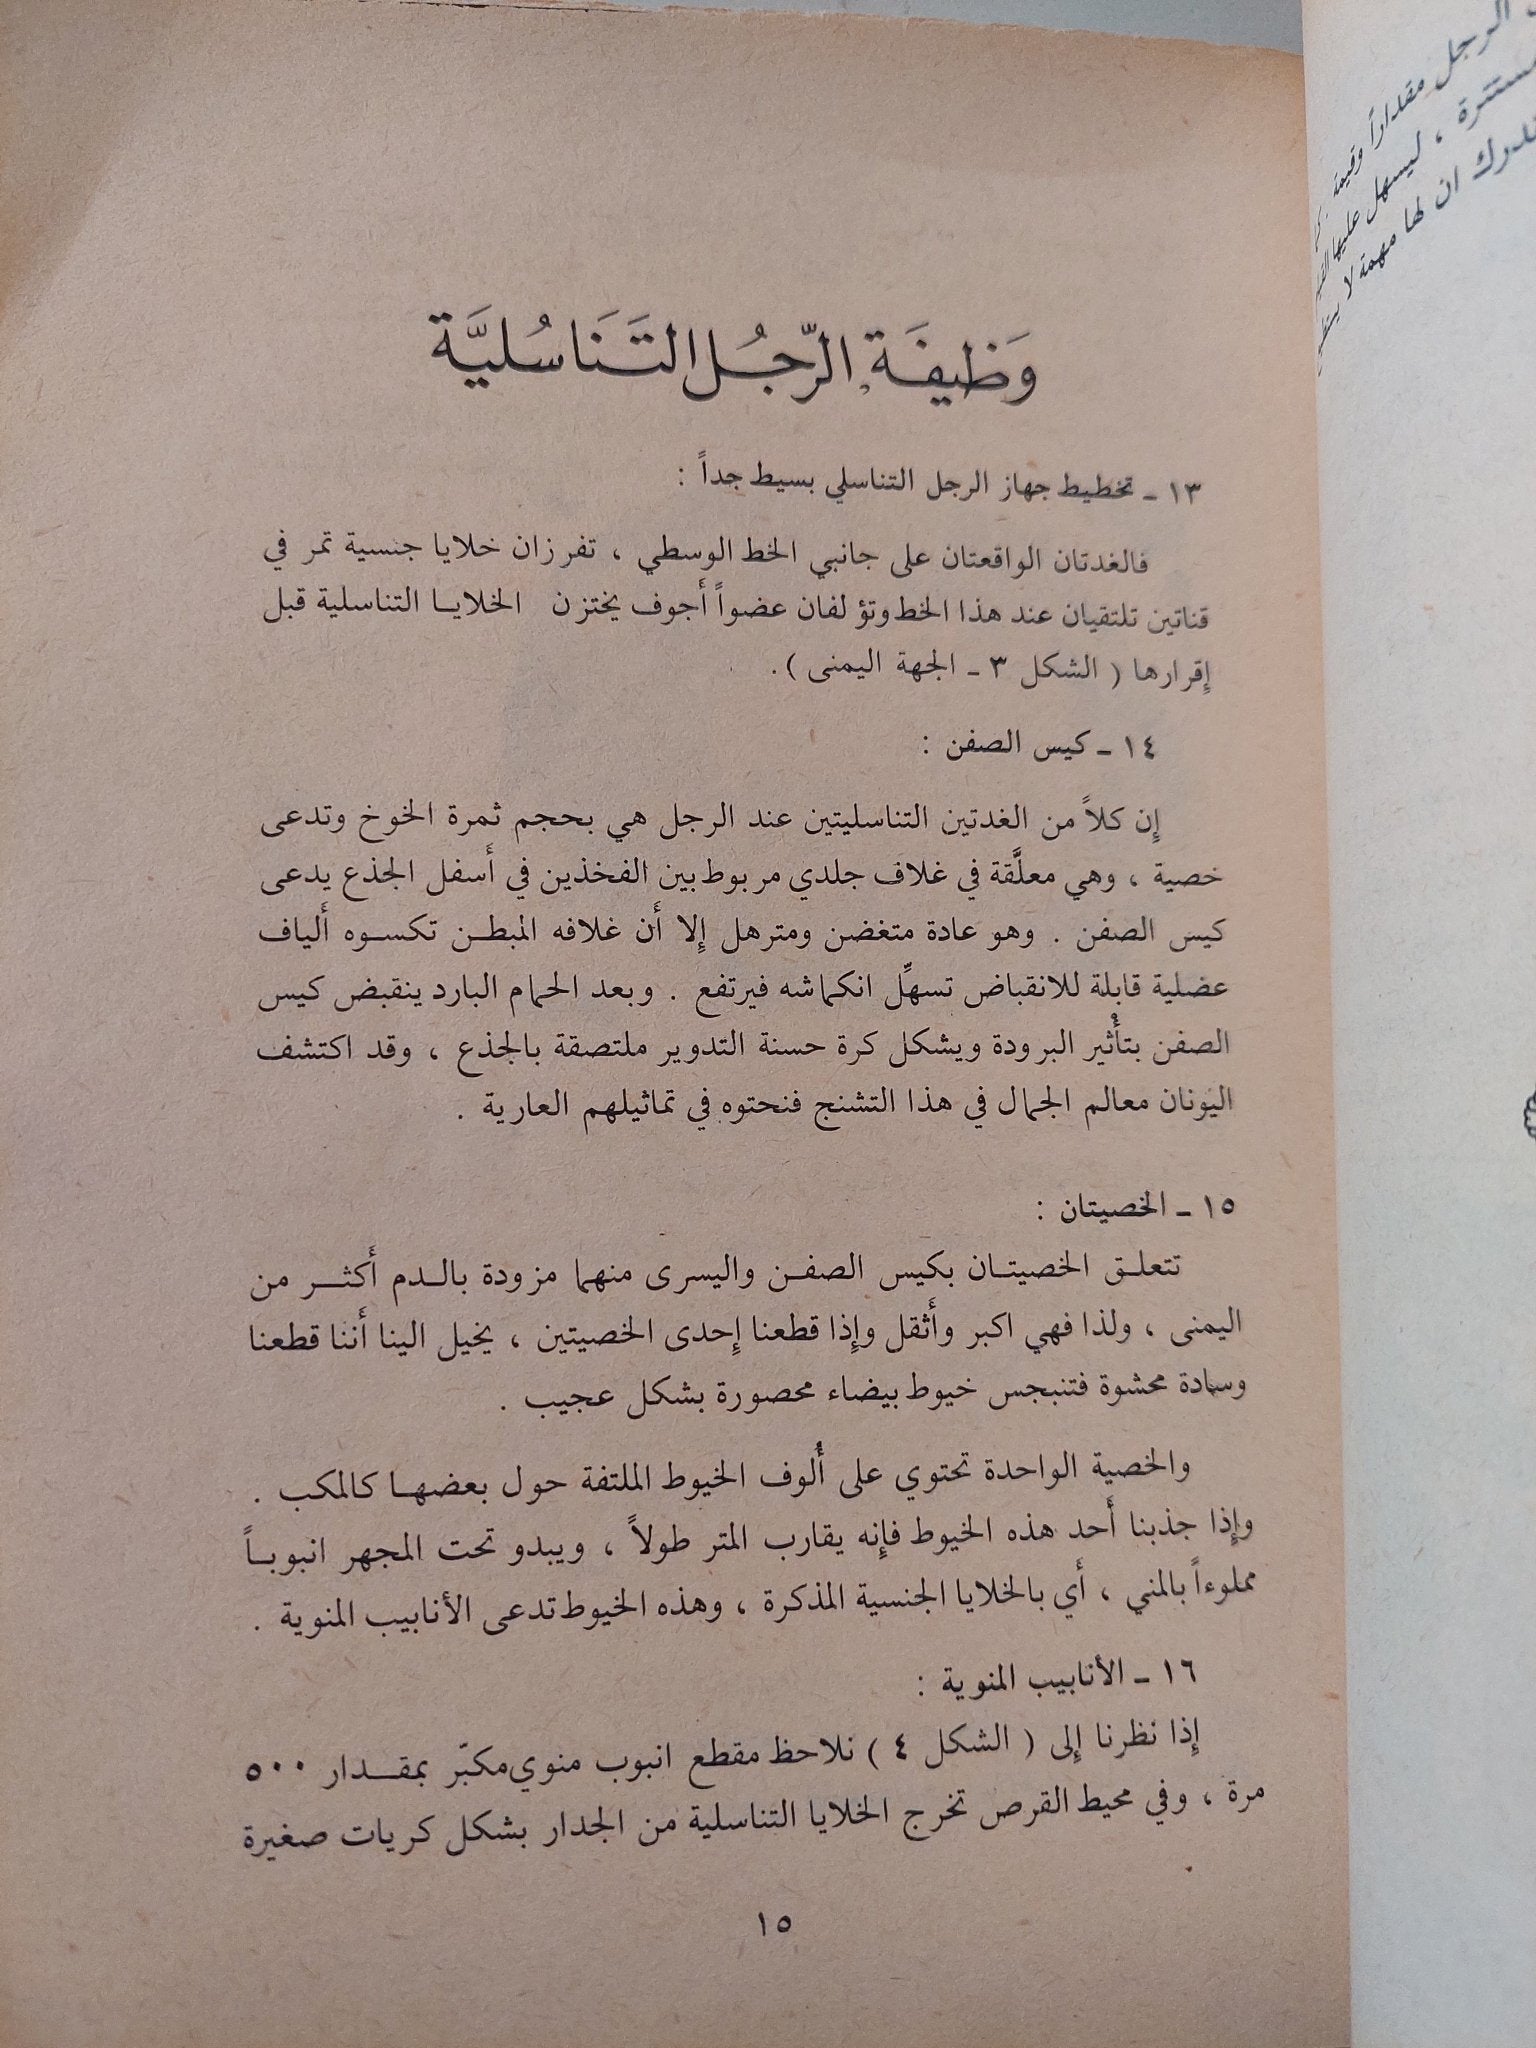 وَظيفَة الرّجُل التَنَاسُليَّة
١٣ ـ تخطيط جهاز الرجل التناسلي بسيط جداً :
فالغدتان الواقعتان على جانبي الخط الوسطي ، تفرزان خلايا جنسية تمر في
قناتين تلتقيان عند هذا الخط وتؤلفان عضواً أجوف يختزن الخلايا التناسلية قبل
إقرارها ( الشكل ٣ ـ الجهة اليمنى ) .
١٤ ـ كيس الصفن :
إن كلاً من الغدتين التناسليتين عند الرجل هي بحجم ثمرة الخوخ وتدعى
خصية ، وهي معلَّقة في غلاف جلدي مربوط بين الفخذين في أسفل الجذع يدعى
كيس الصفن . وهو عادة متغضن ومترهل إلا أن غلافه المبطن تكسوه ألياف
عضلية قابلة للانقباض تسهِّل انكماشه فيرتفع . وبعد الحمام البارد ينقبض كيس
الصفن بتأثير البرودة ويشكل كرة حسنة التدوير ملتصقة بالجذع ، وقد اكتشف
اليونان معالم الجمال في هذا التشنج فنحتوه في تماثيلهم العارية .
١٥ ـ الخصيتان :
تتعلق الخصيتان بكيس الصفن واليسرى منهما مزودة بالدم أكثر من
اليمنى ، ولذا فهي اكبر وأثقل وإذا قطعنا إحدى الخصيتين ، يخيل الينا أننا قطعنا
وسادة محشوة فتنبجس خيوط بيضاء محصورة بشكل عجيب .
والخصية الواحدة تحتوي على أُلوف الخيوط الملتفة حول بعضها كالمكب .
وإذا جذبنا أحد هذه الخيوط فإنه يقارب المتر طولاً ، ويبدو تحت المجهر انبوباً
مملوءاً بالمني ، أي بالخلايا الجنسية المذكرة ، وهذه الخيوط تدعى الأنابيب المنوية .
١٦ ـ الأنابيب المنوية :
إذا نظرنا إلى ( الشكل ٤ ) نلاحظ مقطع انبوب منوي مكبّر بمقدار ٥٠٠
مرة ، وفي محيط القرص تخرج الخلايا التناسلية من الجدار بشكل كريات صغيرة
١٥
الرجل مقداراً وقيمة
ليسهل عليها
ان لها مهمة لا